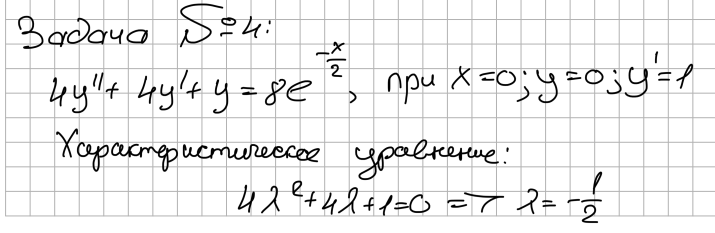 Задача №4:
4y'' + 4y' + y = 8e^{-x/2}, при x=0; y=0; y'=1
Характеристическое уравнение:
4λ²+4λ+1=0 => λ = -1/2